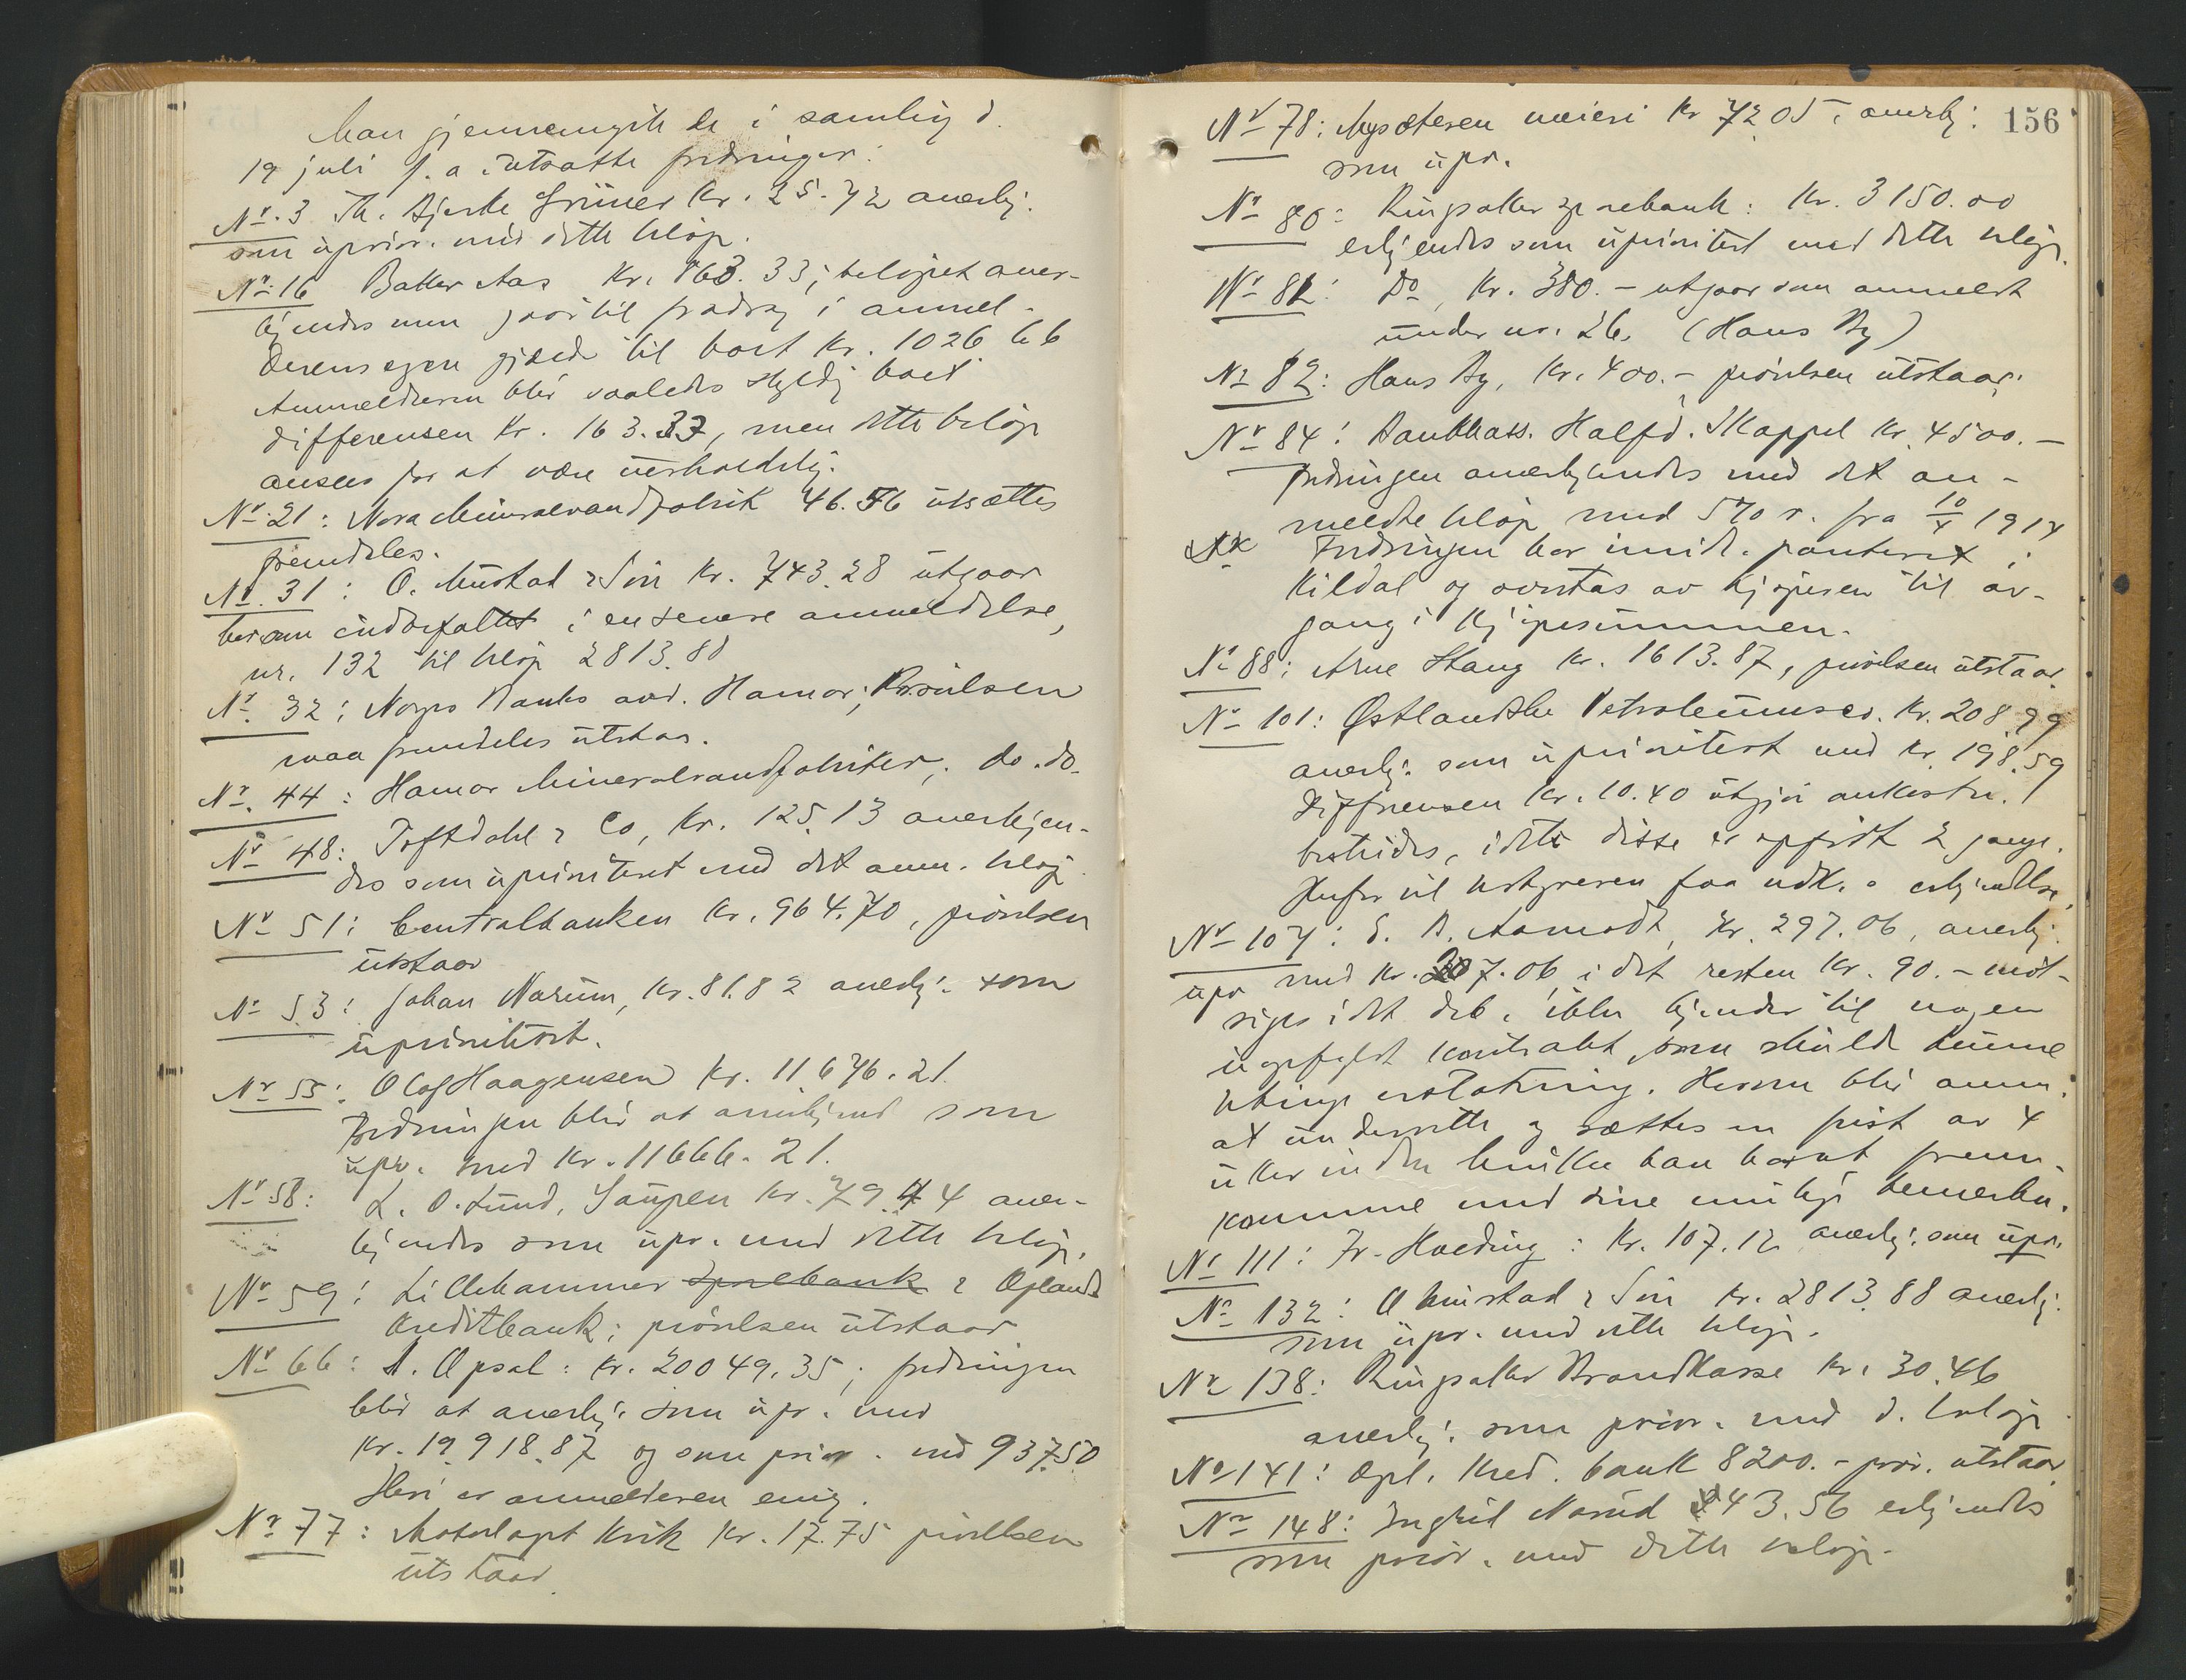 Man gjennemgik de i samling d.
19 juli f. a. utsatte fordringer:
Nr. 3 Th. Bjerke Grüner Kr. 25.72 anerkj.
som uprior. med dette beløp.
Nr. 16 Balke Aas Kr. 863.33; beløpet aner-
kjendes men gaar til fradrag i anmel-
derens egen gjæld til boet Kr. 1026.66
Anmelderen blir saaledes skyldig boet
differensen Kr. 163.33, men dette beløp
ansees for at være uerholdelig.
Nr. 21: Nora Mineralvandfabrik 46.56 utsættes
fremdeles.
Nr. 31: O. Mustad & Søn Kr. 743.28 utgaar
som indbefattet i en senere anmeldelse,
nr. 132 til beløp 2813.88
Nr. 32: Norges Banks avd. Hamar; Prøvelsen
maa fremdeles utstaa.
Nr. 44: Hamar Mineralvandfabriker, do. do.
Nr 48: Toftdahl & Co, Kr. 125.13 anerkjen-
des som uprioritert med det anm. beløp.
Nr 51: Centralbanken Kr. 964.70, prøvelsen
utstaar
Nr 53: Johan Narum, Kr. 81.82 anerkj. som
uprioritert.
Nr 55: Olaf Haagensen Kr. 11676.21.
Fordringen blir at anerkjende som
upr. med Kr. 11666.21.
Nr 58: L. O. Lund, Kr. 79.44 aner-
kjendes som upr. med dette beløp.
Nr 59: Lillehammer Sparebank & Oplands
Kreditbank; prøvelsen utstaar
Nr 66: A. Opsal: Kr. 20049.35; fordringen
blir at anerkj. som upr. med
Kr. 19.918.87 og som prior. med 937.50
Heri er anmelderen enig.
Nr 77: Motorlaget Kvik Kr. 17.75 prøvelsen
utstaar.
156
Nr 78: Mysæteren meieri Kr 72.05, anerkj.
som upr.
Nr 80: Ringsaker sparebank: Kr. 3150.00
erkjendes som uprioritert med dette beløp.
Nr 81: Do, Kr. 380.- utgaar som anmeldt
under nr. 26. (Hans By)
Nr 82: Hans By, Kr. 400.- prøvelsen utstaar.
Nr 84: Bankkass. Halfd. Skappel Kr. 4500.-
fordringen anerkjendes med det an-
meldte beløp med 5% r. fra 10/4 1914
Fordringen har imidl. panteret i
Kildal og overtas av kjøperen til av-
gang i kjøpesummen.
Nr 88: Arne Stang Kr. 1613.87, prøvelsen utstaar
Nr 101: Østlandske Petroleumsco. Kr. 208.99
anerkj. som uprioritert med Kr. 198.59
Differensen Kr. 10.40 utgjør
bestrides, idet disse er opført 2 gange.
Herfor vil bobestyreren faa erkjendelse.
Nr 107: E. B. Aamodt, Kr. 297.06, anerkj.
upr med Kr. 207.06, idet resten Kr. 90.- mot-
siges idet deb. ikke kjender til nogen
uopfyldt kontrakt, som skulde kunne
betinge erstatning. Herom blir anm.
at underrette og sættes en frist av 4
uker inden hvilken han har at frem-
komme med sine mulige bemerkn.
Nr 111: Fr. Hoeding: Kr. 107.12 anerkj. som upr.
Nr 132: O Mustad & Søn Kr. 2813.88 anerkj.
som upr. med dette beløp.
Nr 138: Ringsaker Brandkasse Kr. 30.46
anerkj. som prior. med d. beløp
Nr 141: Opl. Kred. bank 8200.- prøv. utstaar
Nr 148: Ingrid Narud 43.56 erkjendes
som prior. med dette beløp.